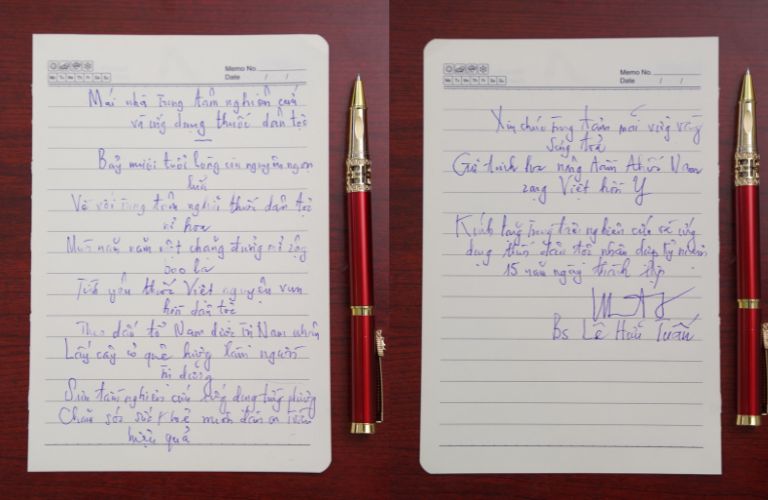 Memo No.
Date / /
Mo Tu We Th Fr Sa Su
Mái nhà Trung tâm nghiên cứu
và ứng dụng thuốc dân tộc
Bảy mươi tuổi lòng còn nguyên ngọn
lửa
Về với trung tâm nghiên thuốc dân tộc
nở hoa
Mười năm năm một chặng đường mở rộng
Tình yêu thuốc Việt nguyên vẹn
hồn dân tộc
Theo dấu tổ Nam dược trị Nam nhân
Lấy cây cỏ quê hương làm nguồn
trị dưỡng
Sưu tầm nghiên cứu ứng dụng từng phương
Chăm sóc sức khoẻ muôn dân
hiệu quả
Memo No.
Date / /
Mo Tu We Th Fr Sa Su
Xin chúc trung tâm mãi vững vàng
sáng toả
Giá trị nâng tầm thuốc Nam
rạng Việt hồn Y
Kính tặng trung tâm nghiên cứu và ứng
dụng thuốc dân tộc nhân dịp kỷ niệm
15 năm ngày thành lập
Bs Lê Hữu Tuấn